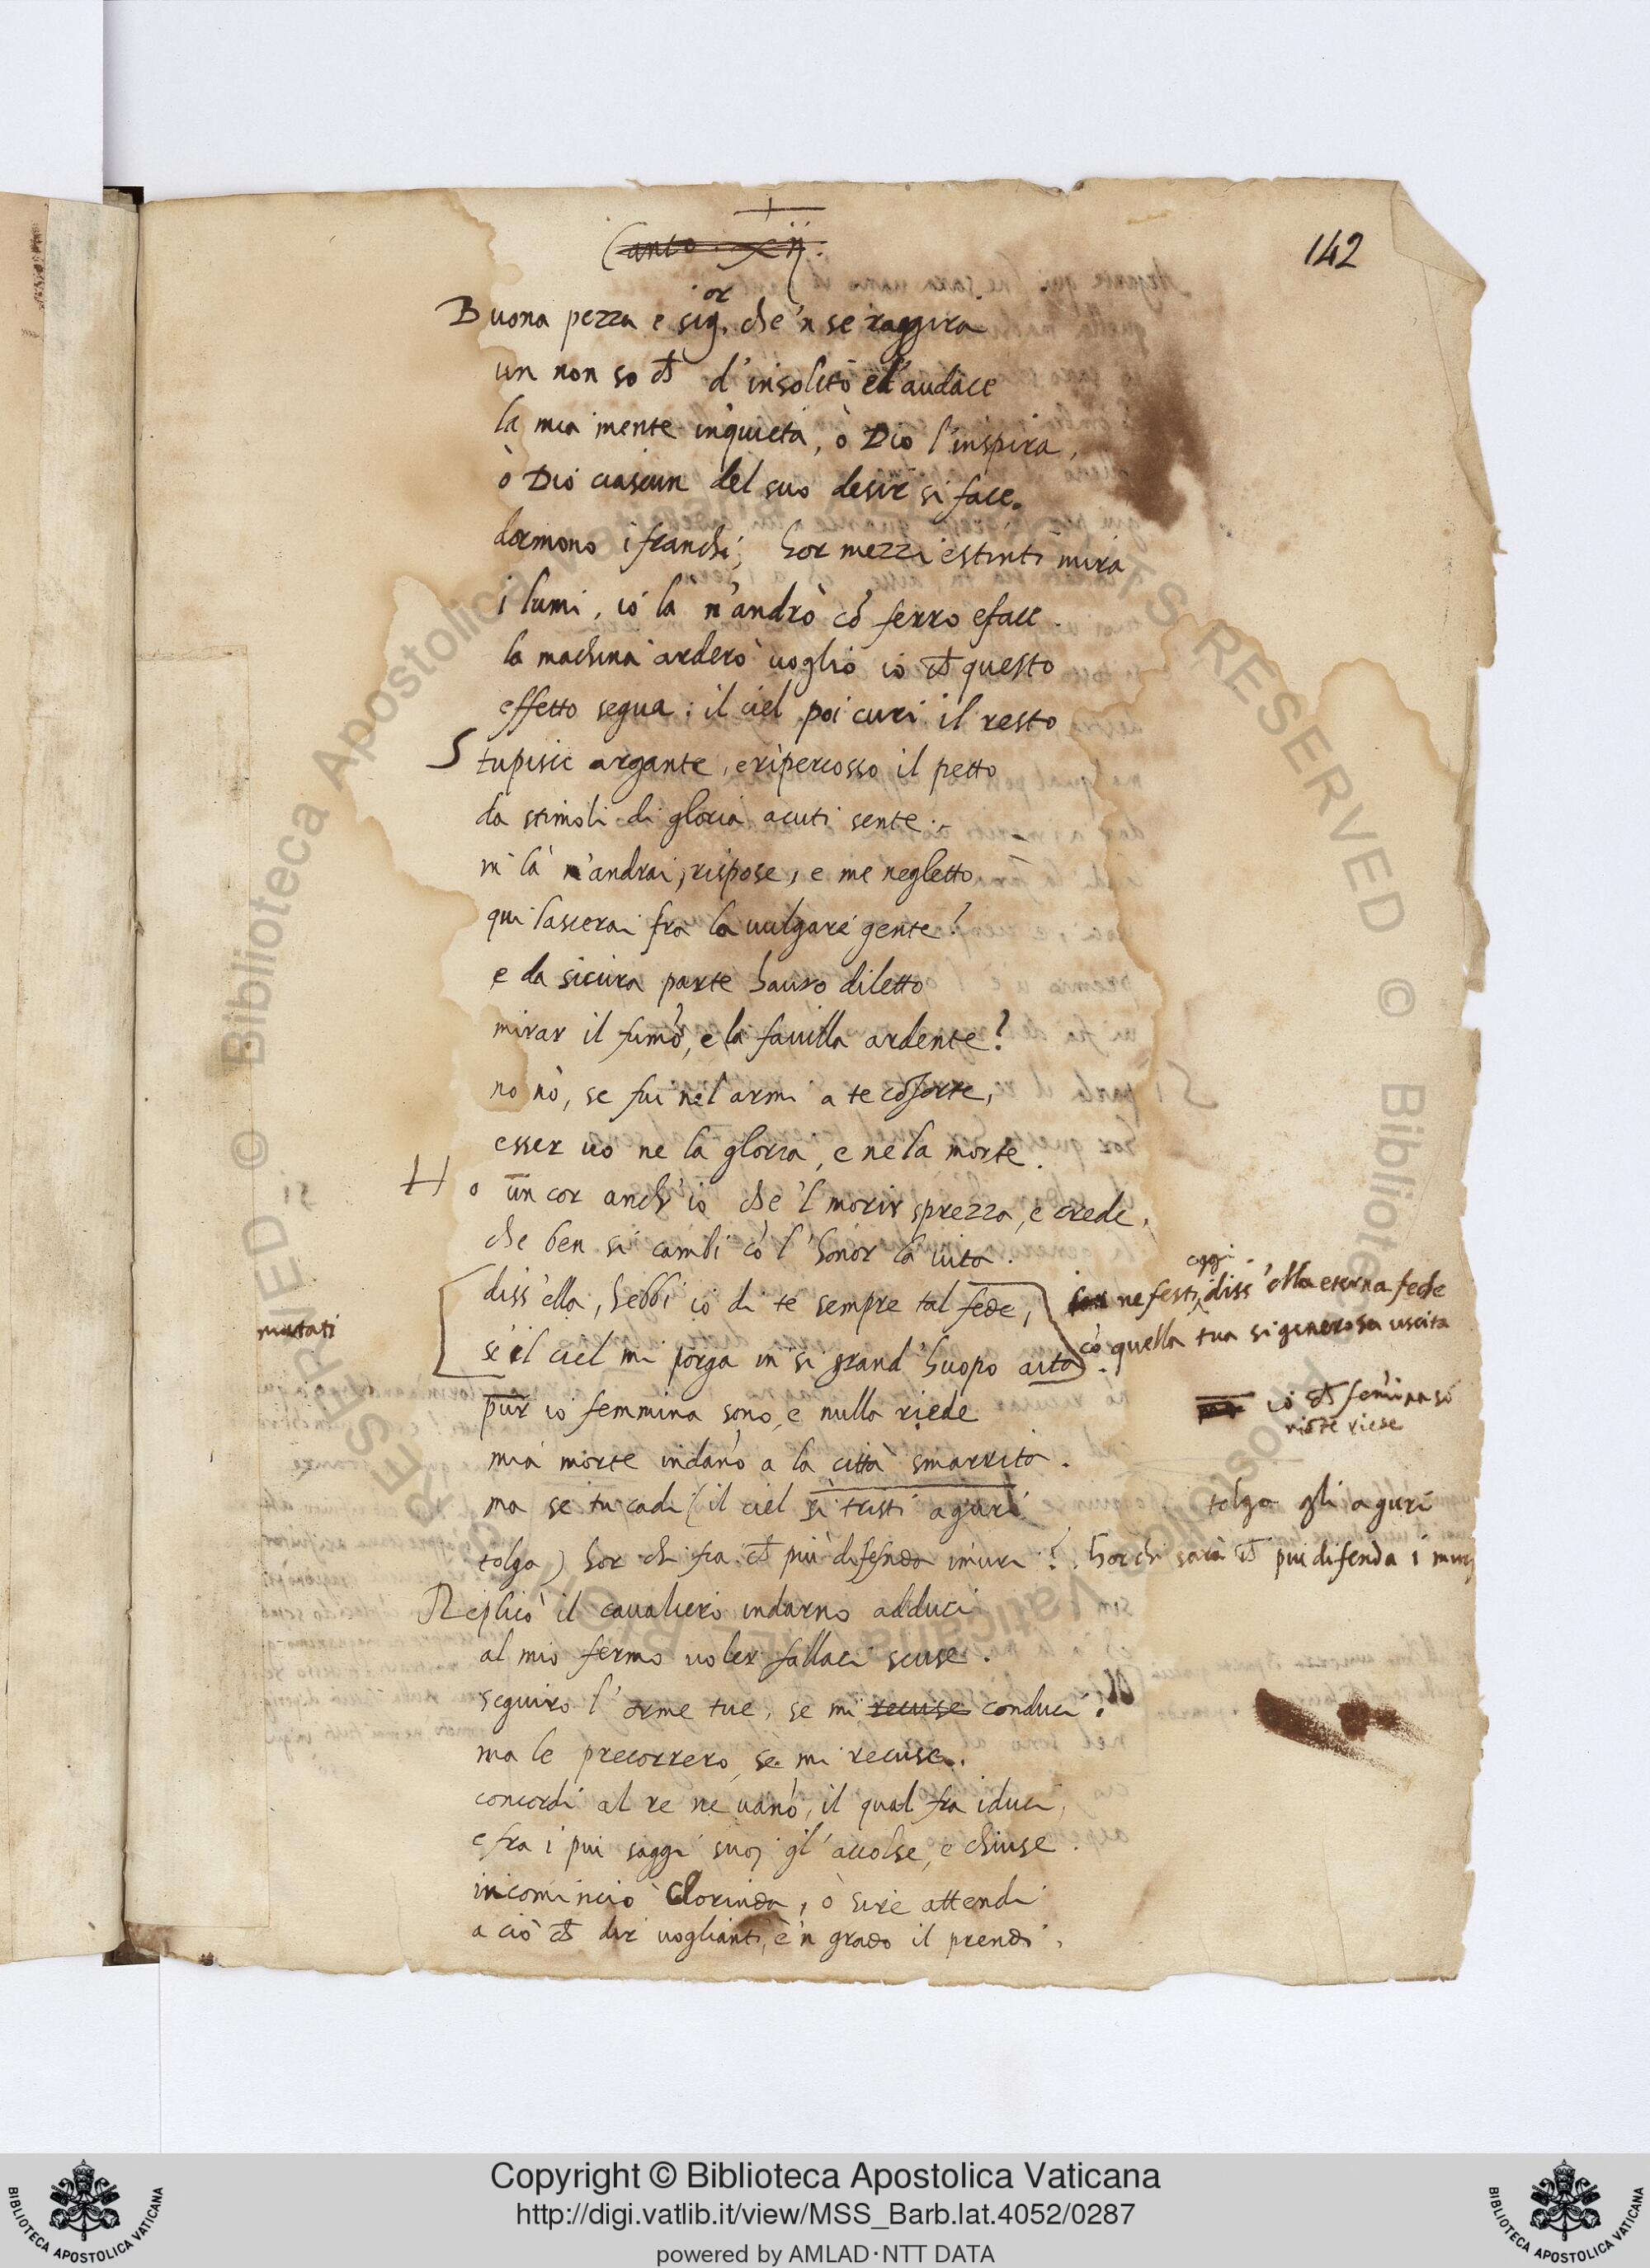 142
Canto xii.
Buona pezza e sig.or che 'n se raggira
un non so ch d'insolito e d'audace
la mia mente inquieta, ò Dio l'inspira,
ò Dio ciascun del suo desir si face.
dormono i franchi, hor mezzi estinti mira
i lumi, io la n'andrò cō ferro e face.
la machina arderò voglio io ch questo
effetto segua: il ciel poi curi il resto
Stupisce argante, e ripercosso il petto
da stimoli di gloria acuti sente.
tu là n'andrai, rispose, e me negletto
qui lascerai fra la vulgare gente?
e da sicura parte havrò diletto
mirar il fumo, e la favilla ardente?
no nò, se fui nel'armi a te cōsorte,
esser vo ne la gloria, e ne la morte.
Ho un cor anch'io che 'l morir sprezza, e crede,
che ben si cambi cō l'honor la vita.
diss'ella, hebbi io di te sempre tal fede,
se 'l ciel mi porga in si grand'huopo aita.
ne festi oggi diss'ella eterna fede
cō quella tua si generosa uscita
mutati
pur io femmina sono, e nulla riede
mia morte in danō a la città smarrita.
io ch femina sō
ma se tu cadi (il ciel si tristi aguri
tolga gli aguri
tolga) hor chi fia ch più difenda i muri?
hor chi sarà ch piu difenda i muri
Replicò il cavaliero indarno adduci
al mio fermo voler fallaci scuse.
seguirò l'orme tue, se mi recuse conduci:
ma le precorrerò, se mi recuse.
concordi al re ne vanō, il qual fra i duci,
e fra i piu saggi suoi gl'accolse, e chiuse.
incominciò Clorinda, ò sire attendi
a ciò ch dir voglianti, e 'n grado il prendi.
© Biblioteca Apostolica Vaticana
Copyright © Biblioteca Apostolica Vaticana
http://digi.vatlib.it/view/MSS_Barb.lat.4052/0287
powered by AMLAD·NTT DATA
BIBLIOTECA APOSTOLICA VATICANA
BIBLIOTECA APOSTOLICA VATICANA